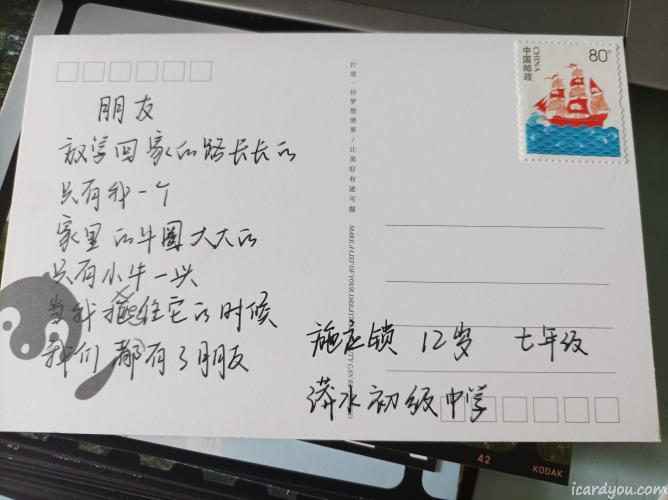 朋友
放学回家的路长长的
只有我一个
家里的牛圈大大的
只有小牛一头
当我抱住它的时候
我们都有了朋友
打造一份梦想清单/比美好有迹可循
80分
中国邮政
CHINA
12岁 七年级
漭水初级中学
42
KODAK
icardyou.com